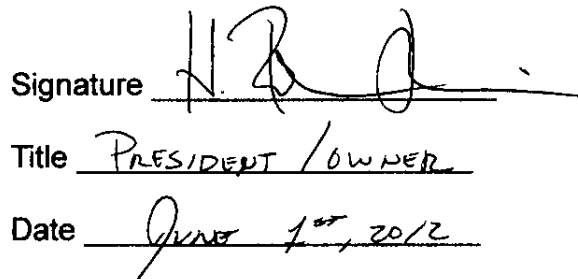 Signature H.
Title PRESIDENT / OWNER
Date JUNE 1st, 2012